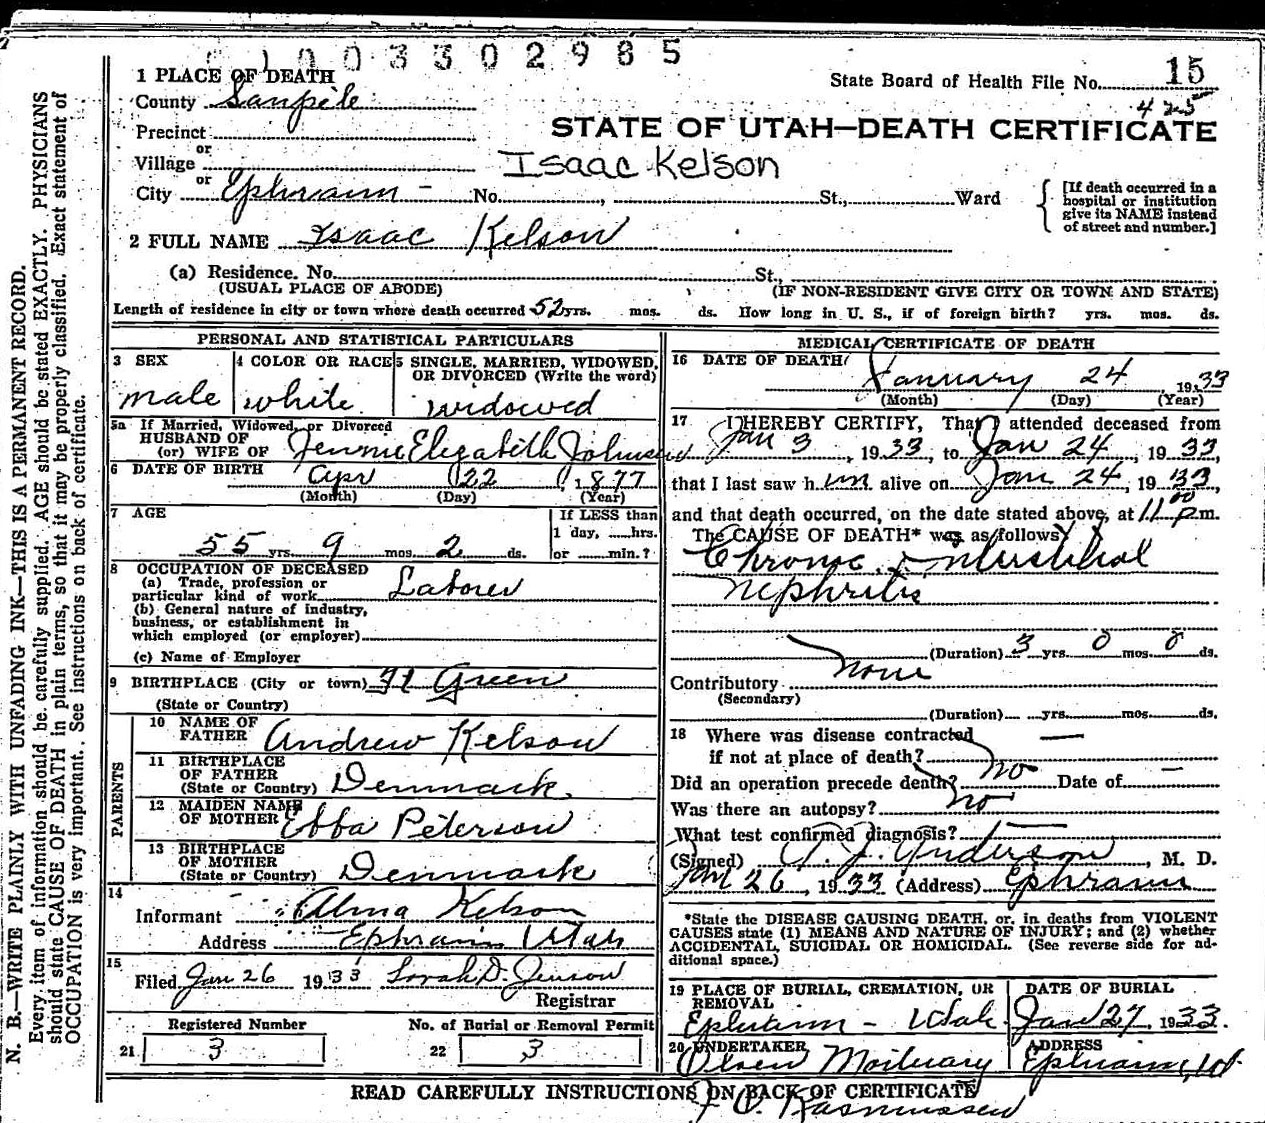 0 1 0 0 3 3 0 2 9 8 5
1 PLACE OF DEATH
State Board of Health File No. 15
County Sanpete
425
Precinct
STATE OF UTAH—DEATH CERTIFICATE
or
Village
Isaac Kelson
or
City Ephraim - No. , St., Ward
[If death occurred in a hospital or institution give its NAME instead of street and number.]
2 FULL NAME Isaac Kelson
(a) Residence. No. St.,
(USUAL PLACE OF ABODE) (IF NON-RESIDENT GIVE CITY OR TOWN AND STATE)
Length of residence in city or town where death occurred 52 yrs. mos. ds. How long in U. S., if of foreign birth? yrs. mos. ds.
PERSONAL AND STATISTICAL PARTICULARS
3 SEX
male
4 COLOR OR RACE
white
5 SINGLE, MARRIED, WIDOWED, OR DIVORCED (Write the word)
widowed
5a If Married, Widowed, or Divorced
HUSBAND OF
(or) WIFE OF Jennie Elizabeth Johnson
6 DATE OF BIRTH Apr 22, 1877
(Month) (Day) (Year)
7 AGE
55 yrs. 9 mos. 2 ds.
If LESS than
1 day, ......hrs.
or ......min.?
8 OCCUPATION OF DECEASED
(a) Trade, profession or
particular kind of work Laborer
(b) General nature of industry,
business, or establishment in
which employed (or employer)
(c) Name of Employer
9 BIRTHPLACE (City or town) Ft Green
(State or Country)
PARENTS
10 NAME OF
FATHER Andrew Kelson
11 BIRTHPLACE
OF FATHER
(State or Country) Denmark.
12 MAIDEN NAME
OF MOTHER Ebba Peterson
13 BIRTHPLACE
OF MOTHER
(State or Country) Denmark
14
Informant Alma Kelson
Address Ephraim Utah
15
Filed Jan 26 1933 Sorah D. Jenson
Registrar
Registered Number
21 3
No. of Burial or Removal Permit
22 3
MEDICAL CERTIFICATE OF DEATH
16 DATE OF DEATH
January 24 1933
(Month) (Day) (Year)
17 I HEREBY CERTIFY, That I attended deceased from
Jan 3, 1933, to Jan 24, 1933,
that I last saw him alive on Jan 24, 1933,
and that death occurred, on the date stated above, at 11 00 p.m.
The CAUSE OF DEATH* was as follows:
Chronic Interstitial
Nephritis
(Duration) 3 yrs. 0 mos. 0 ds.
Contributory none
(Secondary)
(Duration) yrs. mos. ds.
18 Where was disease contracted
if not at place of death? —
Did an operation precede death? no Date of —
Was there an autopsy? no
What test confirmed diagnosis? —
(Signed) A. J. Anderson, M. D.
Jan 26, 1933 (Address) Ephraim
*State the DISEASE CAUSING DEATH, or, in deaths from VIOLENT
CAUSES state (1) MEANS AND NATURE OF INJURY; and (2) whether
ACCIDENTAL, SUICIDAL OR HOMICIDAL. (See reverse side for ad-
ditional space.)
19 PLACE OF BURIAL, CREMATION, OR
REMOVAL
Ephraim - Utah
DATE OF BURIAL
Jan 27, 1933.
20 UNDERTAKER
Olsen Mortuary
ADDRESS
Ephraim, Ut.
READ CAREFULLY INSTRUCTIONS ON BACK OF CERTIFICATE
J. O. Rasmussen
N. B.—WRITE PLAINLY WITH UNFADING INK—THIS IS A PERMANENT RECORD.
Every item of information should be carefully supplied. AGE should be stated EXACTLY. PHYSICIANS
should state CAUSE OF DEATH in plain terms, so that it may be properly classified. Exact statement of
OCCUPATION is very important. See instructions on back of certificate.